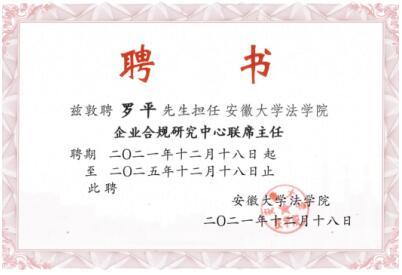 聘书
兹敦聘 罗平 先生担任 安徽大学法学院
企业合规研究中心联席主任
聘期 二〇二一年十二月十八日 起
至 二〇二五年十二月十八日止
此聘
安徽大学法学院
二〇二一年十二月十八日